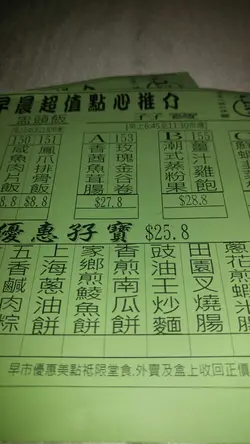 早晨超值點心推介
盅頭飯
仔寶
150
151
咸魚肉片飯
鳳爪排骨飯
A 153
香茜魚茸腸
玫瑰金千卷
B 155
潮式蒸粉果
薑汁雞飽
8.8
$8.8
$27.8
$28.8
優惠孖寶 $25.8
五香鹹肉粽
上海蔥油餅
家鄉煎鯪魚餅
香煎南瓜餅
豉油王炒麵
田園叉燒腸
蔥花煎蝦米腸
早市優惠美點祗限堂食,外賣及盒上收回正價